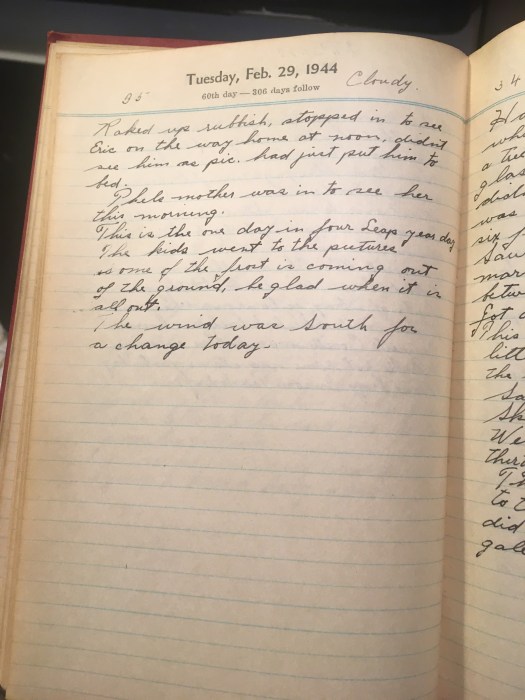 Tuesday, Feb. 29, 1944
Cloudy.
60th day — 306 days follow
Raked up rubbish, stopped in to see
Eric on the way home at noon, didnt
see him as pic. had just put him to
bed.
Phels mother was in to see her
this morning.
This is the one day in four Leap year day
The kids went to the pictures
some of the frost is coming out
of the ground, be glad when it is
all out.
The wind was South for
a change today.
34
a
was
six
Saw
Got
This
The
We
to
did